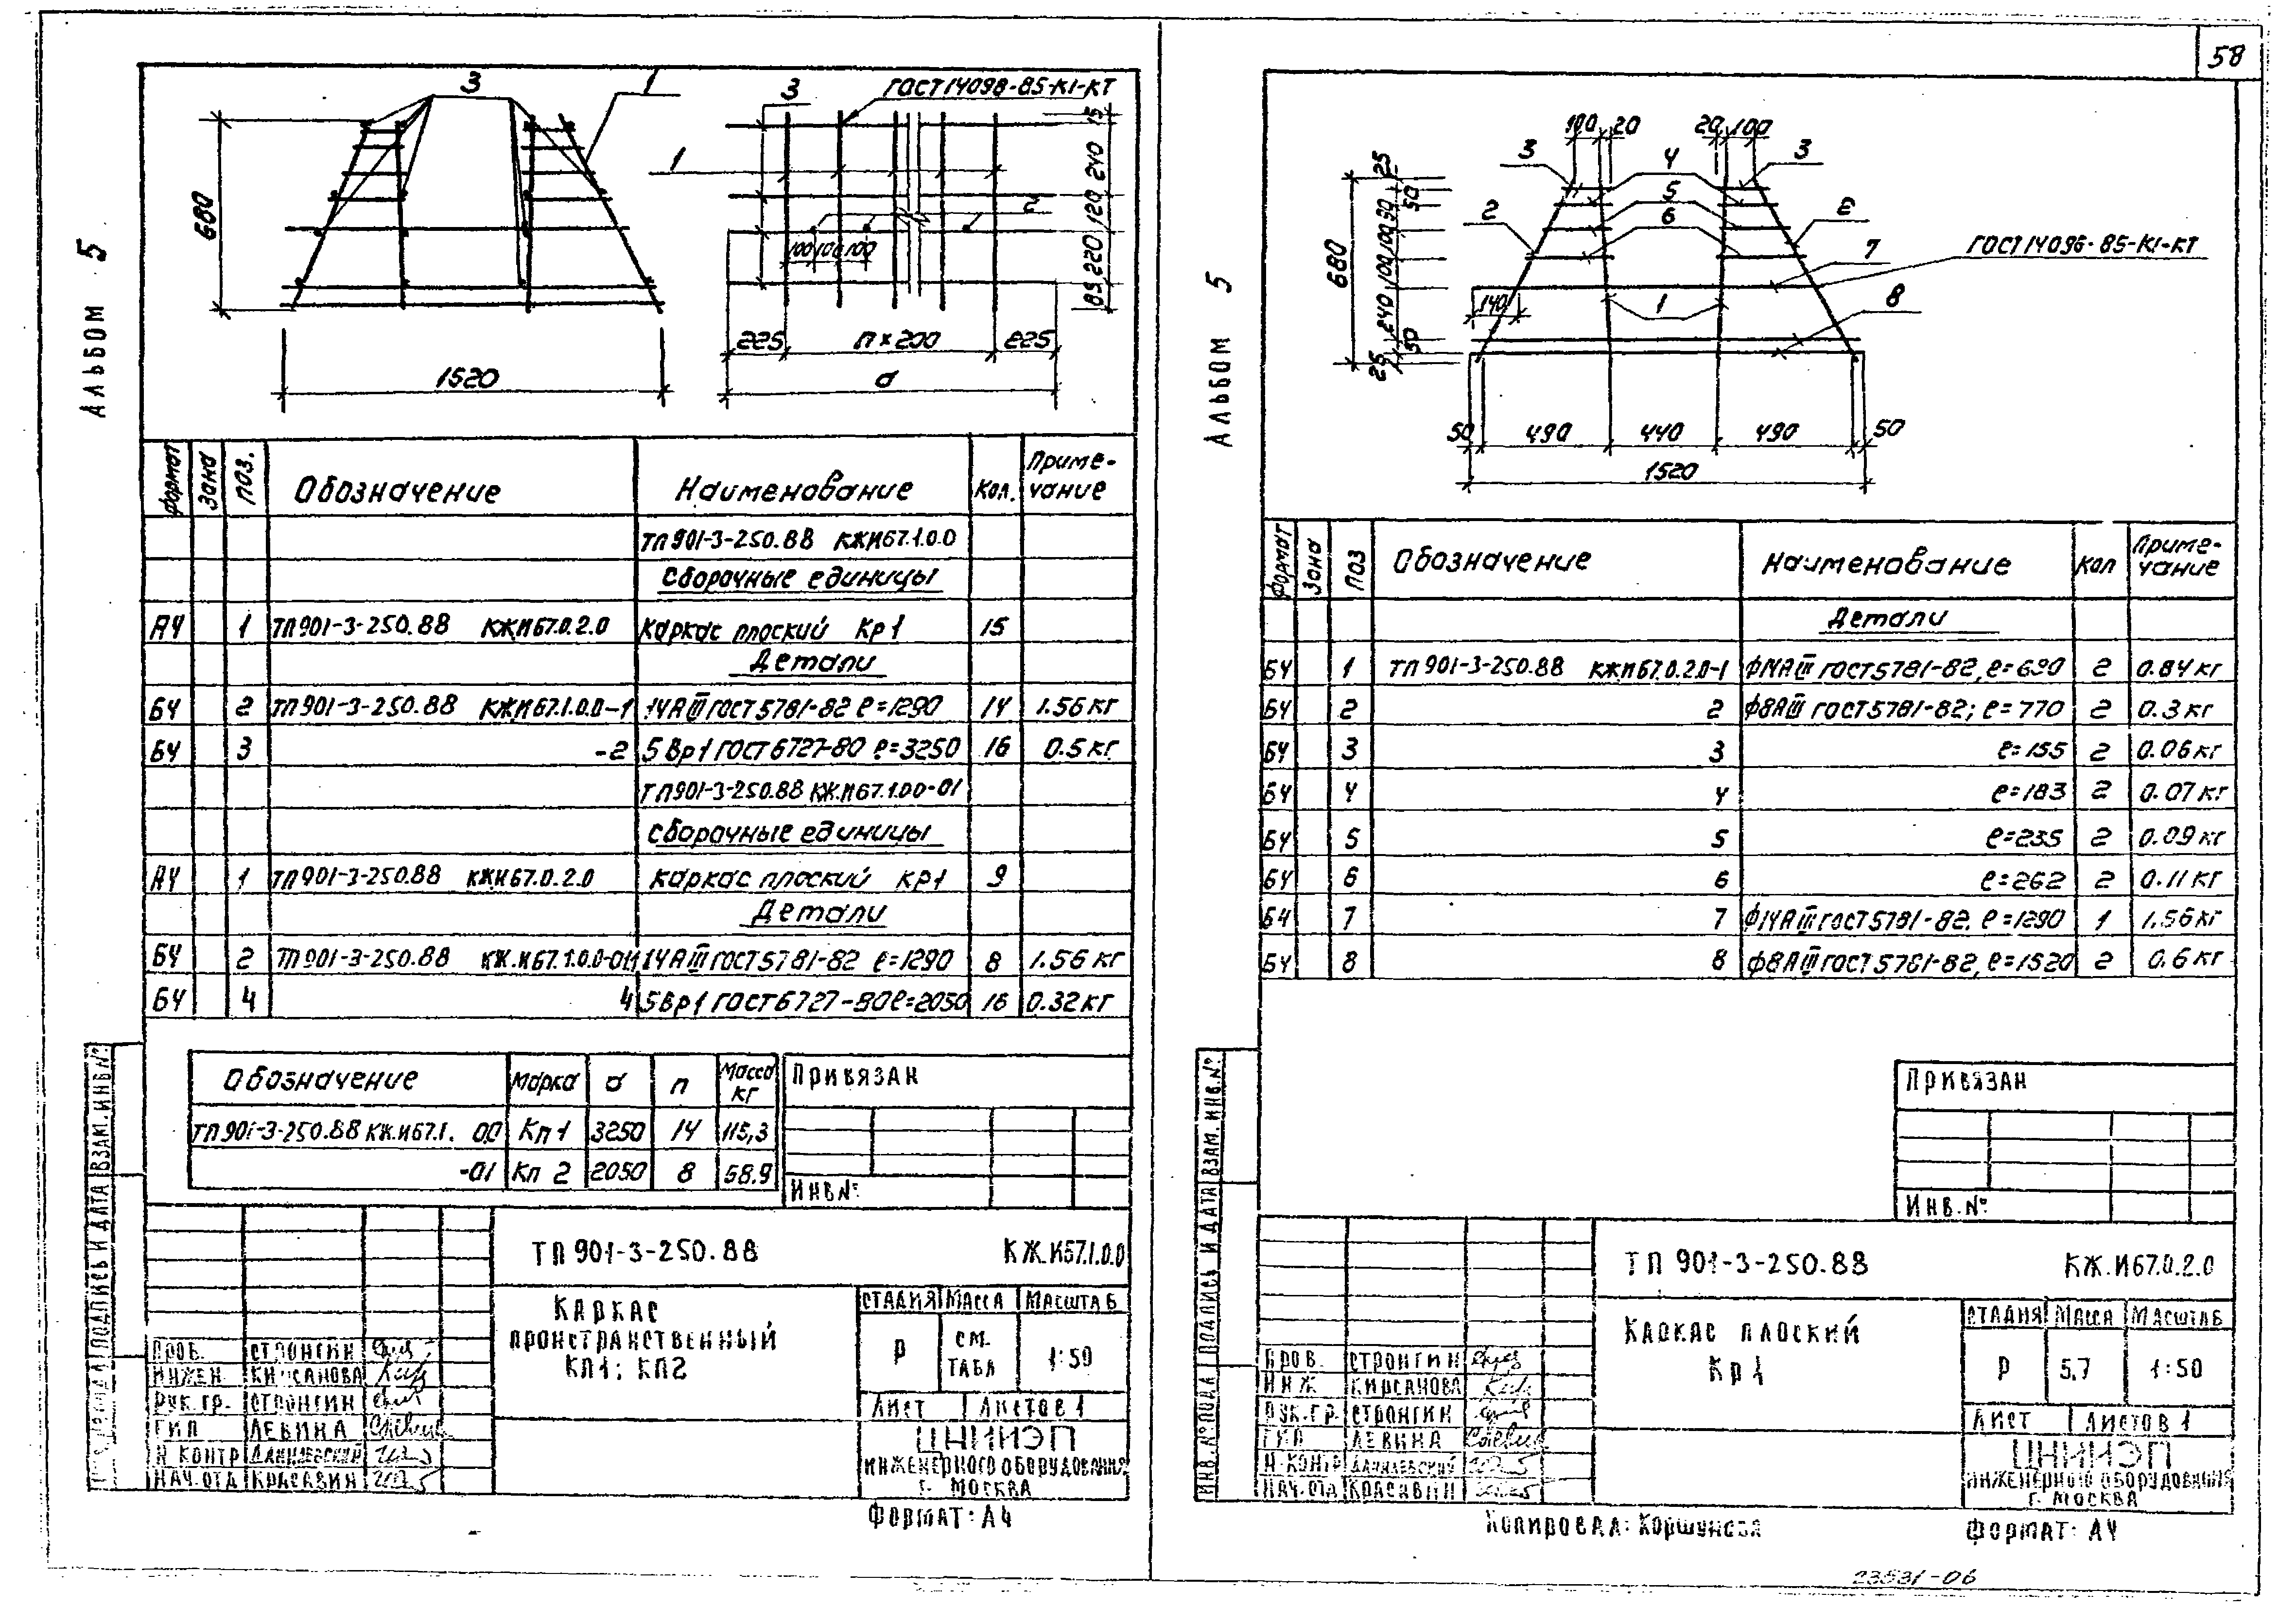 58
АЛЬБОМ 5
3
1
680
1520
3
ГОСТ14098-85-К1-КТ
1
2
15
240
120
220
85
100 100 100
225 п×200 225
а
Формат Зона ПОЗ. Обозначение Наименование Кол. Приме-
чание
ТП901-3-250.88 КЖИ67.1.0.0
Сборочные единицы
А4 1 ТП901-3-250.88 КЖ.И67.0.2.0 Каркас плоский Кр1 15
Детали
БЧ 2 ТП901-3-250.88 КЖ.И67.1.0.0-1 14АIII ГОСТ5781-82 ℓ=1290 14 1.56кг
БЧ 3 -2 5Вр1 ГОСТ6727-80 ℓ=3250 16 0.5кг
ТП901-3-250.88 КЖ.И67.1.00-01
Сборочные единицы
А4 1 ТП901-3-250.88 КЖИ67.0.2.0 Каркас плоский КР1 9
Детали
БЧ 2 ТП901-3-250.88 14АIII ГОСТ5781-82 ℓ=1290 8 1.56кг
БЧ 4 4 5Вр1 ГОСТ6727-80 ℓ=2050 16 0.32кг
Обозначение Марка а п Масса
кг
ТП901-3-250.88 КЖ.И67.1. 00 Кп1 3250 14 115,3
-01 Кп 2 2050 8 68.9
ПРИВЯЗАН
ИНВ№
ТП 901-3-250.88 КЖ.И67.1.0.0
КАРКАС
ПРОНСТРАНСТВЕННЫЙ
КП1; КП2
СТАДИЯ МАССА МАСШТАБ
Р СМ.
ТАБЛ 1:50
ЛИСТ ЛИСТОВ 1
ЦНИИЭП
ИНЖЕНЕРНОГО ОБОРУДОВАНИЯ
Г. МОСКВА
ПРОВ. СТРОНГИН
ИНЖЕН. КИРСАНОВА
РУК.ГР. СТРОНГИН
ГИП ЛЕВИНА
Н КОНТР ДАНИЛЕВСКИЙ
НАЧ.ОТД КРАСАВИН
ПОДПИСЬ И ДАТА ВЗАМ.ИНВ№
ФОРМАТ: А4
АЛЬБОМ 5
100 20 20 100
3 4 3
5
2 6 2
7
ГОСТ14098-85-К1-КТ
1
8
140
680
25
50
90
100
100
240
50
25
50 490 440 490 50
1520
Формат Зона ПОЗ Обозначение Наименование Кол Приме-
чание
Детали
БЧ 1 ТП901-3-250.88 КЖ.И67.0.2.0-1 Ф14АIII ГОСТ5781-82, ℓ=690 2 0.84кг
БЧ 2 2 Ф8АIII ГОСТ5781-82; ℓ=770 2 0.3кг
БЧ 3 3 ℓ=155 2 0.06кг
БЧ 4 4 ℓ=183 2 0.07кг
БЧ 5 5 ℓ=235 2 0.09кг
БЧ 6 6 ℓ=262 2 0.11кг
БЧ 7 7 Ф14АIII ГОСТ5781-82. ℓ=1290 1 1.56кг
БЧ 8 8 Ф8АIII ГОСТ5781-82, ℓ=1520 2 0.6кг
ПРИВЯЗАН
ИНВ.№
ТП 901-3-250.88 КЖ.И67.0.2.0
КАРКАС ПЛОСКИЙ
КР1
СТАДИЯ МАССА МАСШТАБ
Р 5.7 1:50
ЛИСТ ЛИСТОВ 1
ЦНИИЭП
ИНЖЕНЕРНОГО ОБОРУДОВАНИЯ
Г. МОСКВА
ПРОВ. СТРОНГИН
ИНЖ КИРСАНОВА
РУК.ГР. СТРОНГИН
ГИП ЛЕВИНА
Н-КОНТР ДАНИЛЕВСКИЙ
НАЧ.ОТД КРАСАВИН
ИНВ.№ПОДЛ ПОДПИСЬ И ДАТА ВЗАМ.ИНВ.№
КОПИРОВАЛ: КОРШУНОВА ФОРМАТ: А4
23531-06